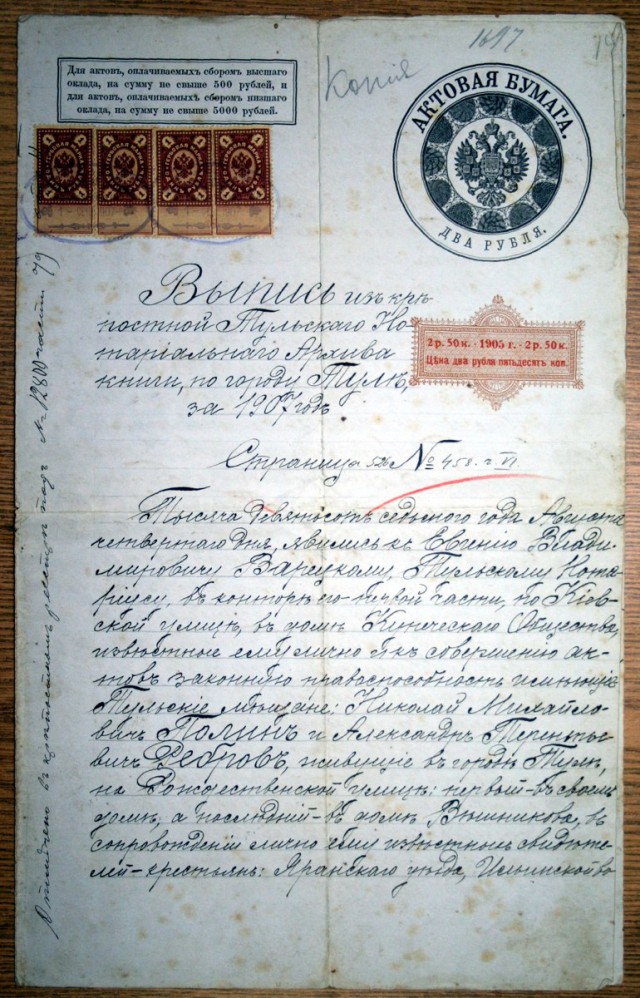 1697
Копія
Для актовъ, оплачиваемыхъ сборомъ высшаго
оклада, на сумму не свыше 500 рублей, и
для актовъ, оплачиваемыхъ сборомъ низшаго
оклада, на сумму не свыше 5000 рублей.
АКТОВАЯ БУМАГА.
ДВА РУБЛЯ.
1 1 1 1 1 1 1 1
Выпись изъ крѣ
постной Тульскаго Но
таріальнаго Архива
книги, по городу Тулѣ,
за 1907 годъ
2 р. 50 к. - 1905 г. - 2 р. 50 к.
Цѣна два рубля пятьдесятъ коп.
Страница № 458 г. VI
Тысяча девятьсотъ седьмого года Августа
четвертаго дня, явились къ Евгенію Влади
мировичу Варецкому, Тульскому Нота
ріусу, въ контору его первой части, по Кіев
ской улицѣ, въ домѣ Купеческаго Общества,
извѣстные ему лично и къ совершенію ак-
товъ законную правоспособность имѣющіе
Тульскіе мѣщане: Николай Михайло
вичъ Полинъ и Александръ Терентье
вичъ Ребровъ, живущіе въ городѣ Тулѣ,
на Рождественской улицѣ: первый - въ своемъ
домѣ, а послѣдній - въ домѣ Вюшникова, въ
сопровожденіи лично ему извѣстныхъ свидѣте
лей - крестьянъ: Яранскаго уѣзда, Ильинской во
Отмѣчено въ крѣпостномъ реестрѣ подъ № 12800 части 79